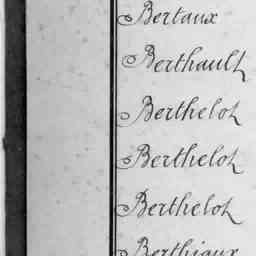 Bertaux
Berthault
Berthelot
Berthelot
Berthelot
Berthiaux